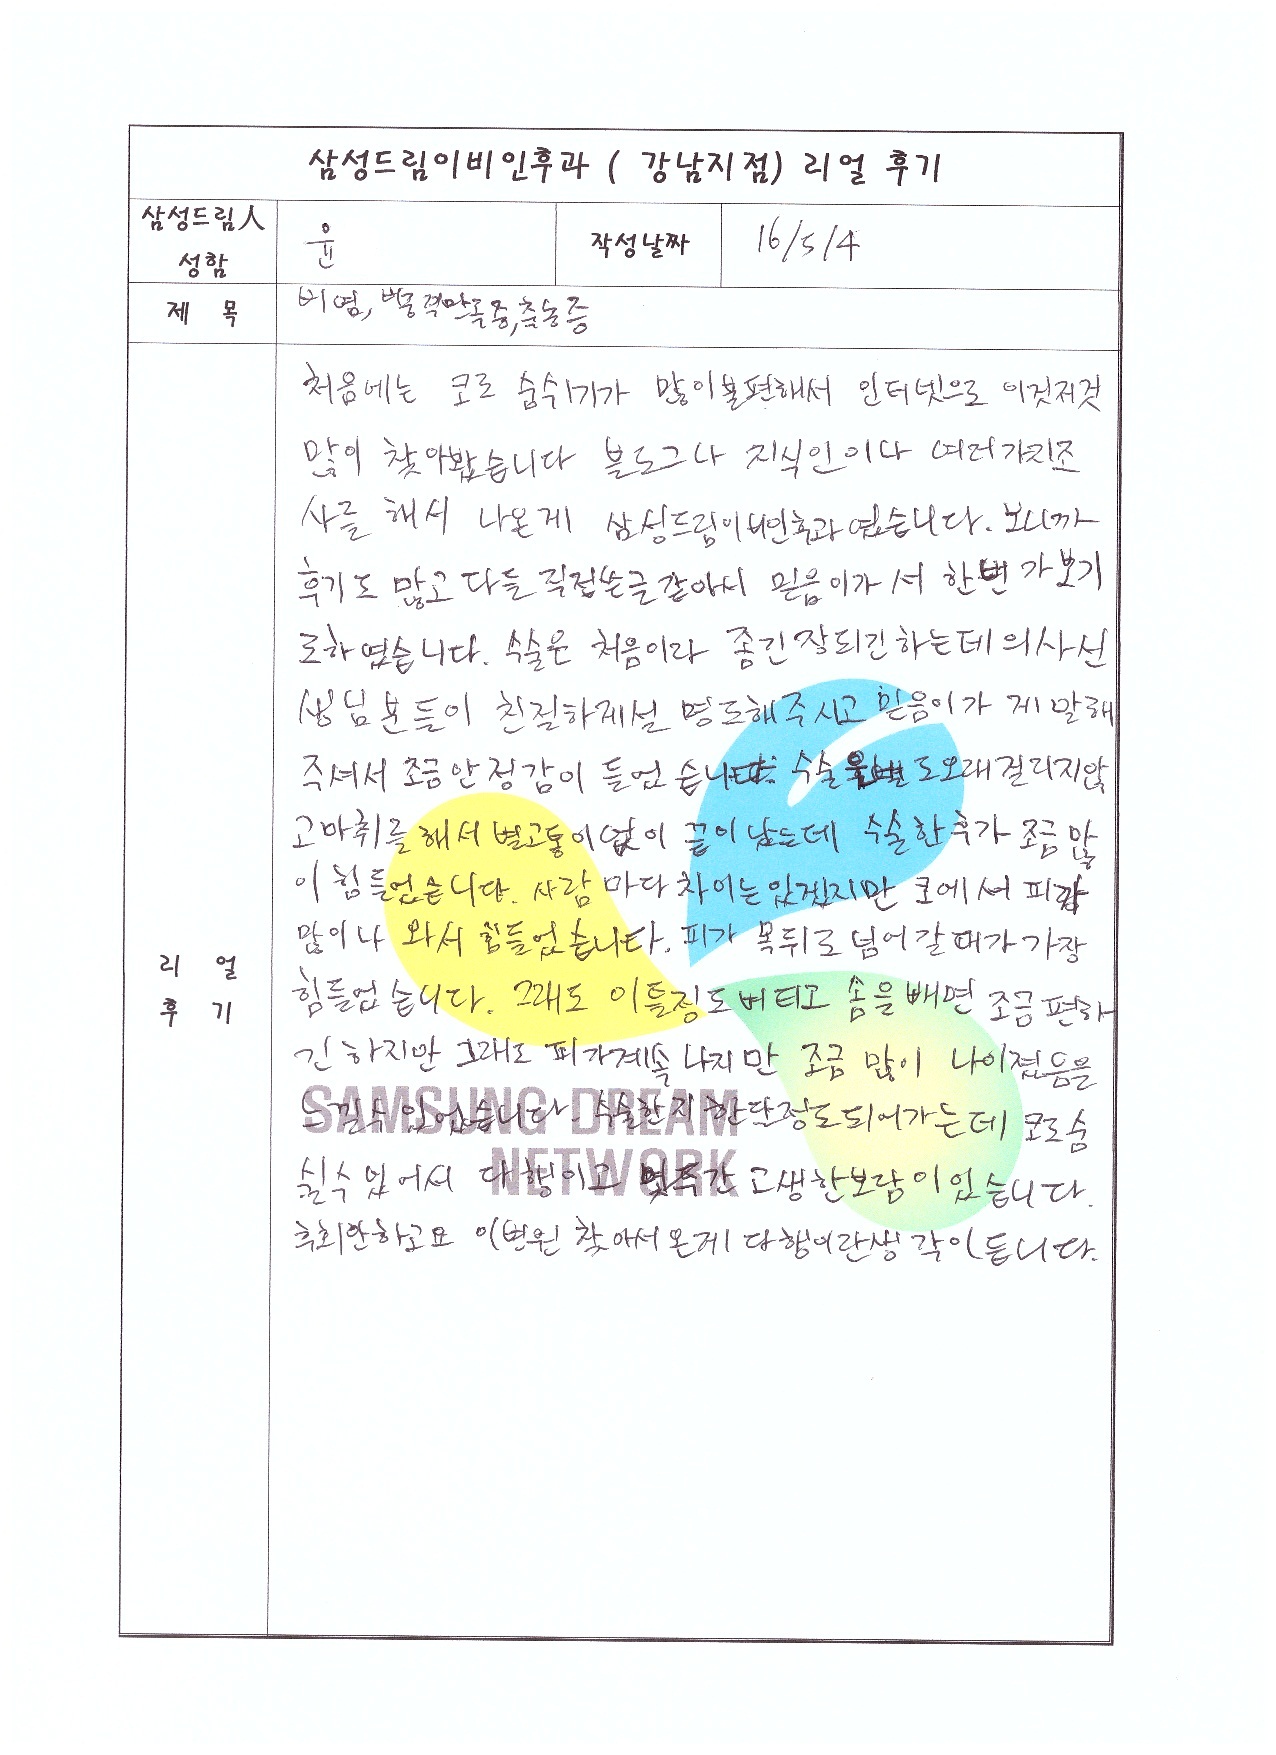 삼성드림이비인후과 ( 강남지점) 리얼 후기
삼성드림人 성함
윤
작성날짜
16/5/4
제 목
비염, 비중격만곡증,축농증
리 얼
후 기
처음에는 코로 숨쉬기가 많이불편해서 인터넷으로 이것저것
많이 찾아봤습니다 블로그나 지식인이나 여러가지조
사를 해서 나온게 삼성드림이비인후과였습니다. 보니까
후기도 많고 다들 직접쓴글같아서 믿음이가서 한번 가보기
로하였습니다. 수술은 처음이라 좀긴장되긴하는데 의사선
생님분들이 친절하게설명도해주시고 믿음이가게 말해
주셔서 조금안정감이 들었습니다. 수술은별도오래걸리지않
고마취를해서 별고통이없이 끝이났는데 수술한후가 조금많
이 힘들었습니다. 사람마다차이는있겠지만 코에서 피가
많이나와서 힘들었습니다. 피가 목뒤로넘어갈때가 가장
힘들었습니다. 그래도 이틀정도버티고 솜을빼면 조금편하
긴하지만 그래도 피가계속나지만 조금 많이 나이졌음을
느낄수있었습니다. 수술한지한달정도되어가는데 코로숨
쉴수있어서 다행이고 몇주간 고생한보람이있습니다.
후회안하고요 이병원 찾아서온게 다행이란생각이듭니다.
SAMSUNG DREAM
NETWORK